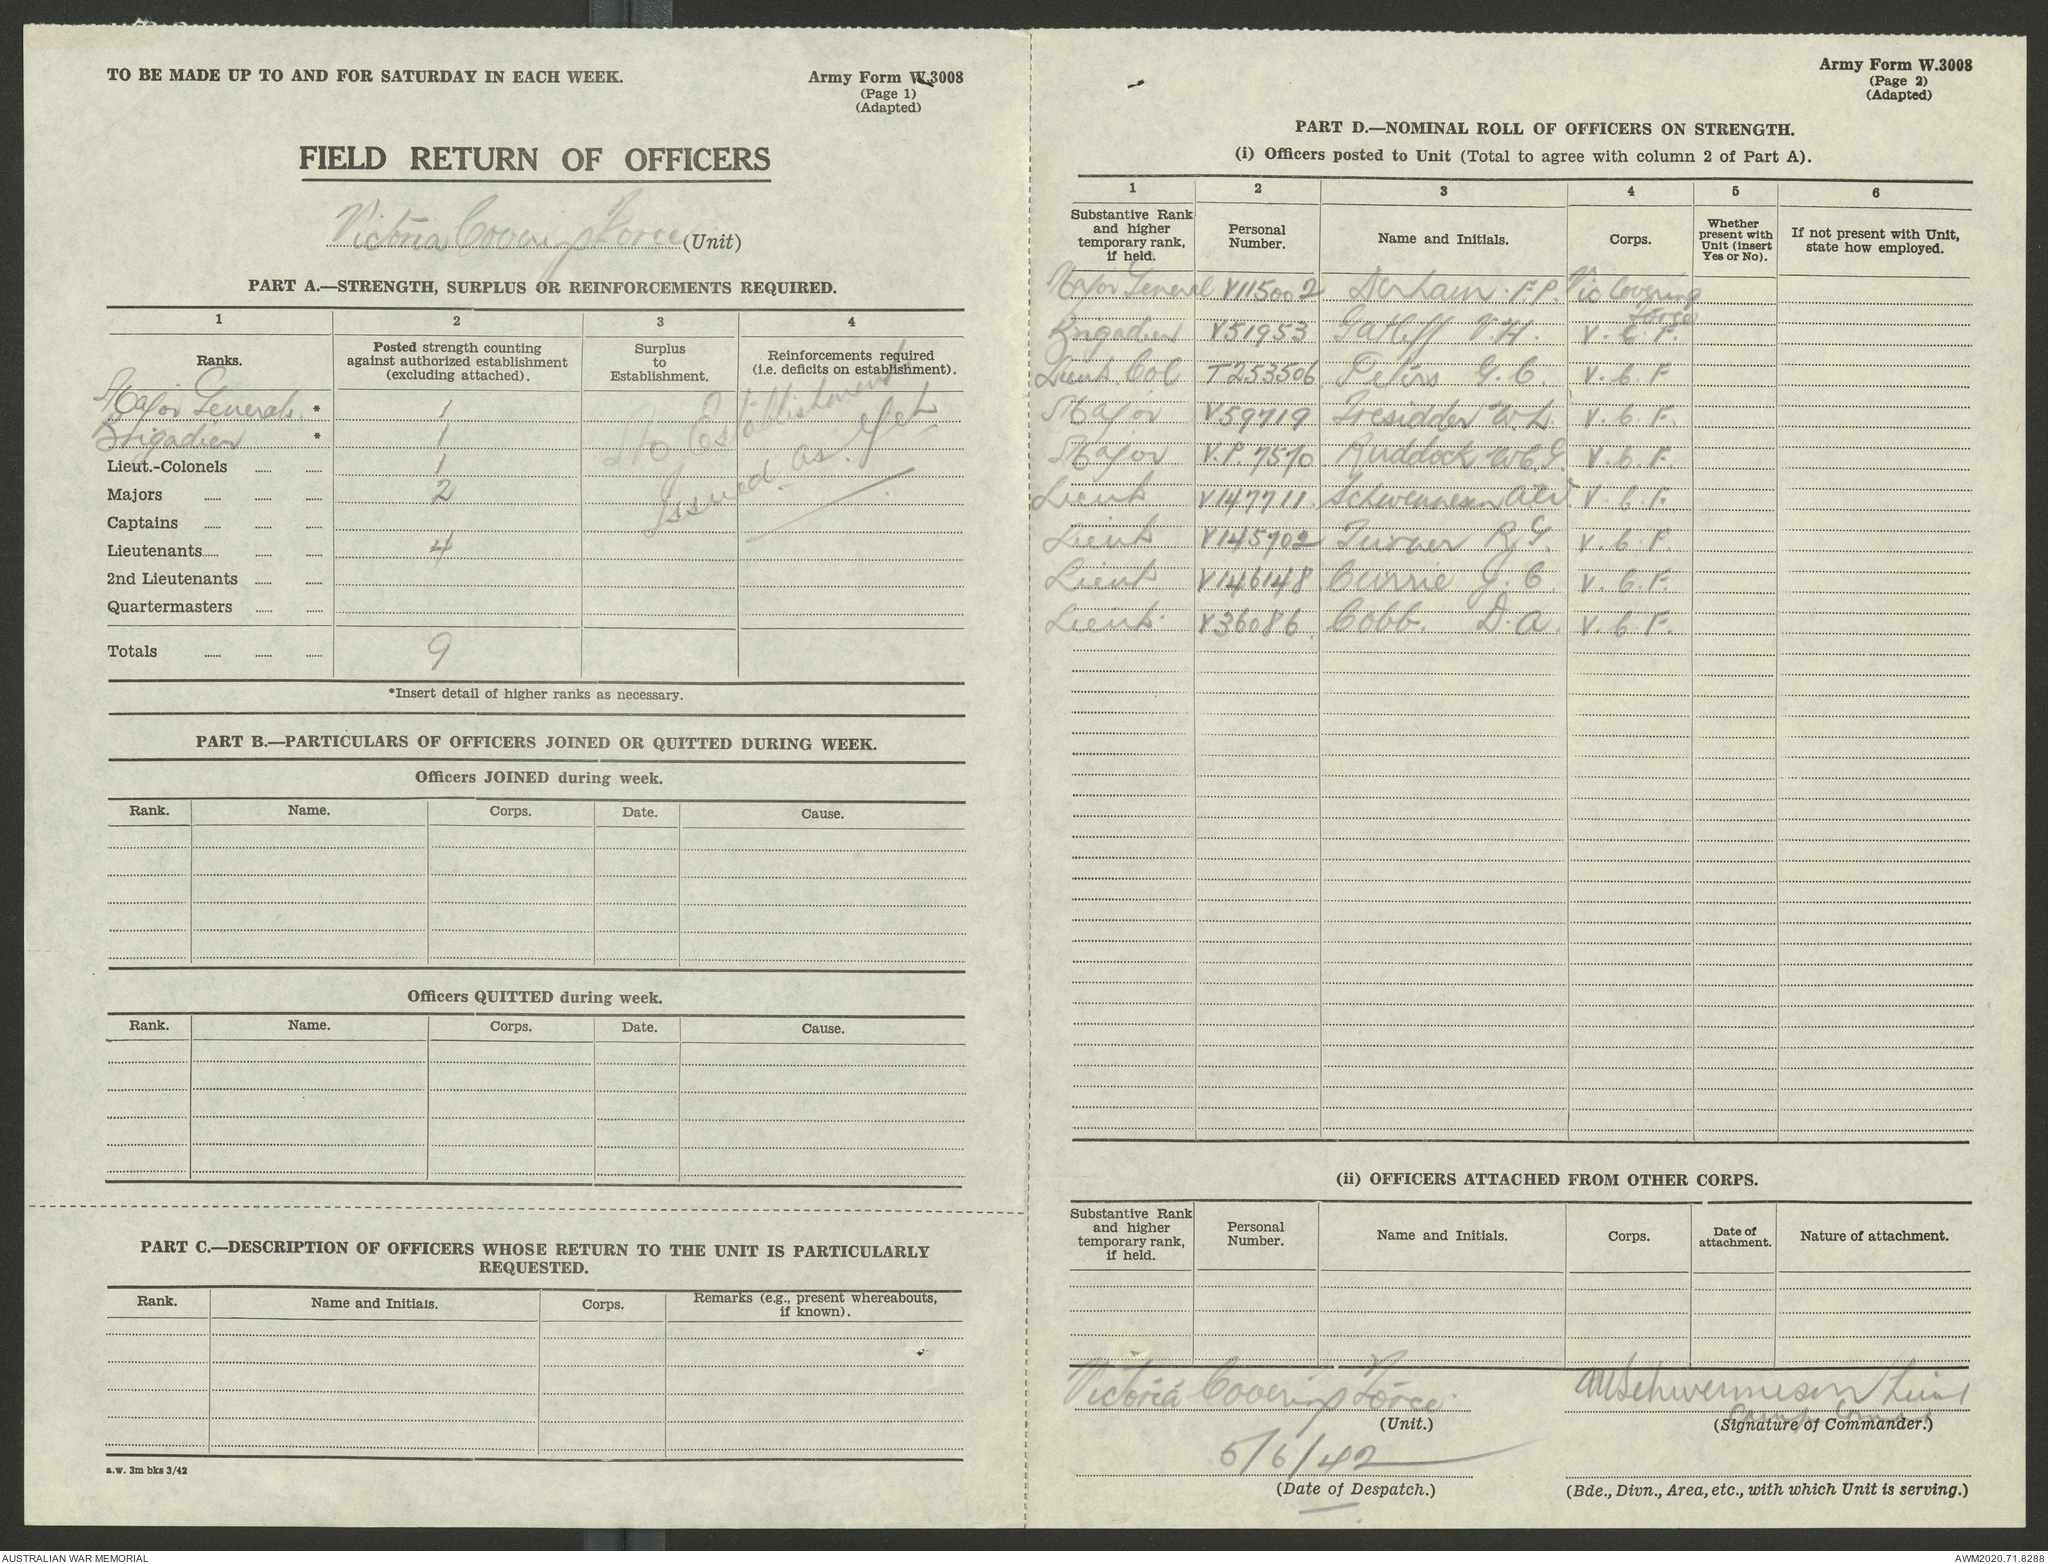 TO BE MADE UP TO AND FOR SATURDAY IN EACH WEEK.
Army Form W.3008
(Page 1)
(Adapted)
FIELD RETURN OF OFFICERS
Victoria Covering Force (Unit)
PART A.—STRENGTH, SURPLUS OR REINFORCEMENTS REQUIRED.
1 2 3 4
Ranks.
Posted strength counting against authorized establishment (excluding attached).
Surplus to Establishment.
Reinforcements required (i.e. deficits on establishment).
Major Generals * 1
Brigadier * 1
Lieut.-Colonels ...... ...... 1
Majors ...... ...... ...... 2
Captains ...... ...... ......
Lieutenants...... ...... ...... 4
2nd Lieutenants ...... ......
Quartermasters ...... ......
No Establishment
Issued as yet
Totals ...... ...... ...... 9
*Insert detail of higher ranks as necessary.
PART B.—PARTICULARS OF OFFICERS JOINED OR QUITTED DURING WEEK.
Officers JOINED during week.
Rank. Name. Corps. Date. Cause.
Officers QUITTED during week.
Rank. Name. Corps. Date. Cause.
PART C.—DESCRIPTION OF OFFICERS WHOSE RETURN TO THE UNIT IS PARTICULARLY
REQUESTED.
Rank. Name and Initials. Corps. Remarks (e.g., present whereabouts, if known).
a.w. 3m bks 3/42
Army Form W.3008
(Page 2)
(Adapted)
PART D.—NOMINAL ROLL OF OFFICERS ON STRENGTH.
(i) Officers posted to Unit (Total to agree with column 2 of Part A).
1 2 3 4 5 6
Substantive Rank and higher temporary rank, if held.
Personal Number.
Name and Initials.
Corps.
Whether present with Unit (insert Yes or No).
If not present with Unit, state how employed.
Major General V115002 Derham F.P. Vic Covering Force
Brigadier V51953 Gatliff V.H. V.C.F.
Lieut Col T253506 Peters G.C. V.C.F
Major V59719 Tresidder W.L. V.C.F.
Major V.P.7570 Ruddock W.E.G. V.C.F.
Lieut V147711 Schwennesen V.C.F.
Lieut V145702 Turner R.G. V.C.F.
Lieut V146148 Currie G.C. V.C.F.
Lieut. V36086 Cobb. D.A. V.C.F.
(ii) OFFICERS ATTACHED FROM OTHER CORPS.
Substantive Rank and higher temporary rank, if held.
Personal Number.
Name and Initials.
Corps.
Date of attachment.
Nature of attachment.
Victoria Covering Force
(Unit.)
Schwennesen Lieut
Camp
(Signature of Commander.)
5/6/42
(Date of Despatch.)
(Bde., Divn., Area, etc., with which Unit is serving.)
AUSTRALIAN WAR MEMORIAL
AWM2020.71.8288